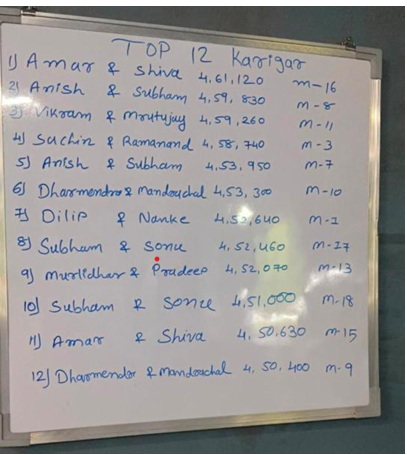 TOP 12 Karigar
1) Amar & Shiva 4,61,120 m-16
2) Anish & Subham 4,59,830 m-8
3) Vikram & Mrutujay 4,59,260 m-11
4) Suchin & Ramanand 4,58,740 m-3
5) Anish & Subham 4,53,950 m-7
6) Dharmendra & Mandouchal 4,53,300 m-10
7) Dilip & Nanke 4,52,640 m-1
8) Subham & Sonu 4,52,460 m-17
9) Murlidhar & Pradeep 4,52,070 m-13
10) Subham & Sonu 4,51,000 m-18
11) Amar & Shiva 4,50,630 m-15
12) Dharmendra & Mandouchal 4,50,400 m-9